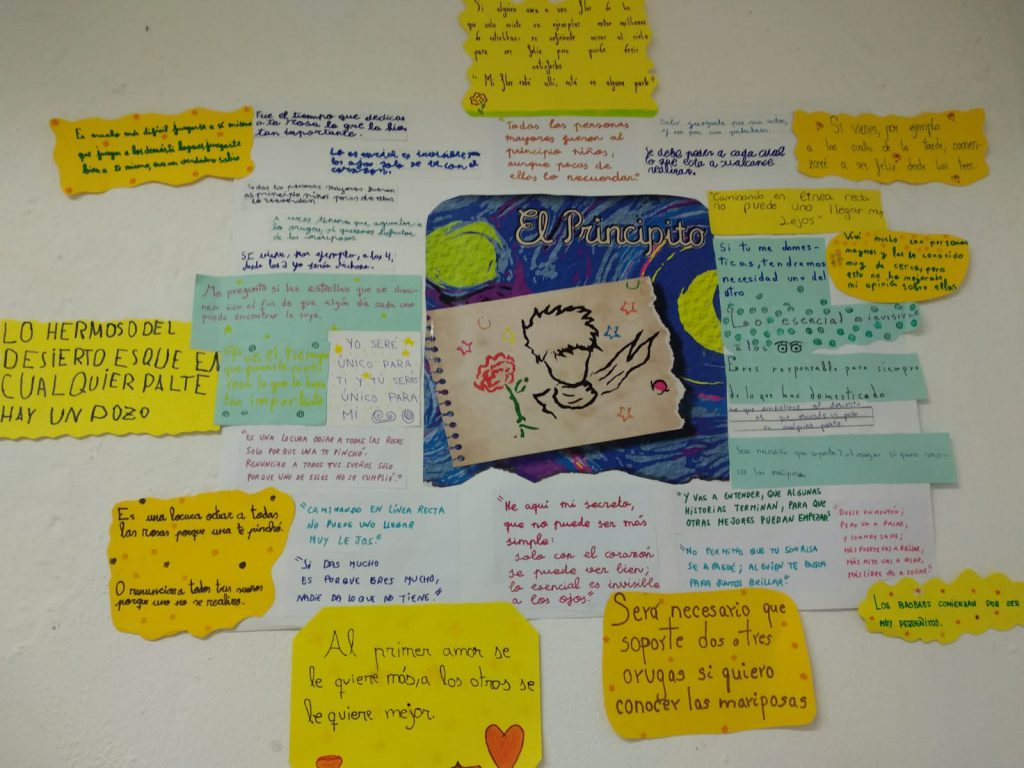 Si alguien ama a una flor de la
que solo existe un ejemplar entre millones
de estrellas es suficiente mirar al cielo
para ser feliz pues puede decir
satisfecho
"Mi flor está allí, en alguna parte"
Es mucho más difícil juzgarse a sí mismo
que juzgar a los demás, si logras juzgarte
bien a ti mismo, eres un verdadero sabio
Fue el tiempo que dedicas
a tu rosa lo que la hizo
tan importante.
Lo esencial es invisible para
los ojos solo se ve con el
corazón.
Todas las personas
mayores fueron al
principio niños,
aunque pocas de
ellas lo recuerdan."
Debí juzgarla por sus actos,
y no por sus palabras.
Se debe pedir a cada cual
lo que está a su alcance
realizar.
Si vienes, por ejemplo
a las cuatro de la tarde, comen-
zaré a ser feliz desde las tres.
Todas las personas mayores fueron
al principio niños pocas de ellas
lo recuerdan
A veces tenemos que aguantar a
la orugas, si queremos disfrutar
de las mariposas
SI vienes, por ejemplo, a las 4,
desde las 3 yo sería dichoso.
El Principito
"Caminando en línea recta
no puede uno llegar muy
Lejos"
Viví mucho con personas
mayores y las he conocido
muy de cerca, pero
esto no ha mejorado
mi opinión sobre ellas.
Si tu me domes-
ticas, tendremos
necesidad uno del
otro
Lo esencial es invisible
a los
Me pregunto si las estrellas que se ilumi-
nan con el fin de que algún día cada uno
pueda encontrar la suya.
LO HERMOSO DEL
DESIERTO ES QUE EN
CUALQUIER PALTE
HAY UN POZO
Fue el tiempo
que pasaste con tu
rosa lo que la hizo
tan importante
YO SERÉ
ÚNICO PARA
TI Y TÚ SERÁS
ÚNICO PARA
MI
Eres responsable para siempre
de lo que has domesticado
Lo que embellece al desierto
es que esconde un pozo
en cualquier parte
Será necesario que soporte 2 o 3 orugas si quiero cono-
cer las mariposas
"ES UNA LOCURA ODIAR A TODAS LAS ROSAS
SOLO PORQUE UNA TE PINCHÓ.
RENUNCIAR A TODOS TUS SUEÑOS SOLO
PORQUE UNO DE ELLOS NO SE CUMPLIÓ."
Es una locura odiar a todas
las rosas porque una te pinchó.
O renunciar a todos tus sueños
porque uno no se realizo.
"CAMINANDO EN LÍNEA RECTA
NO PUEDE UNO LLEGAR
MUY LEJOS."
"SI DAS MUCHO
ES PORQUE ERES MUCHO,
NADIE DA LO QUE NO TIENE."
"He aquí mi secreto,
que no puede ser más
simple:
solo con el corazón
se puede ver bien;
lo esencial es invisible
a los ojos."
"Y VAS A ENTENDER, QUE ALGUNAS
HISTORIAS TERMINAN, PARA QUE
OTRAS MEJORES PUEDAN EMPEZAR"
"NO PERMITAS QUE TU SONRISA
SE APAGUE; ALGUIEN TE BUSCA
PARA JUNTOS BRILLAR."
"DUELE UN MONTÓN;
PERO VA A PASAR,
Y CUANDO SANE;
MÁS FUERTE VAS A BRILLAR,
MÁS ALTO VAS A VOLAR,
MÁS LIBRE VAS A SOÑAR."
LOS BAOBABS COMIENZAN POR SER
MUY PEQUEÑITOS.
Al primer amor se
le quiere más, a los otros se
le quiere mejor.
Será necesario que
soporte dos o tres
orugas si quiero
conocer las mariposas